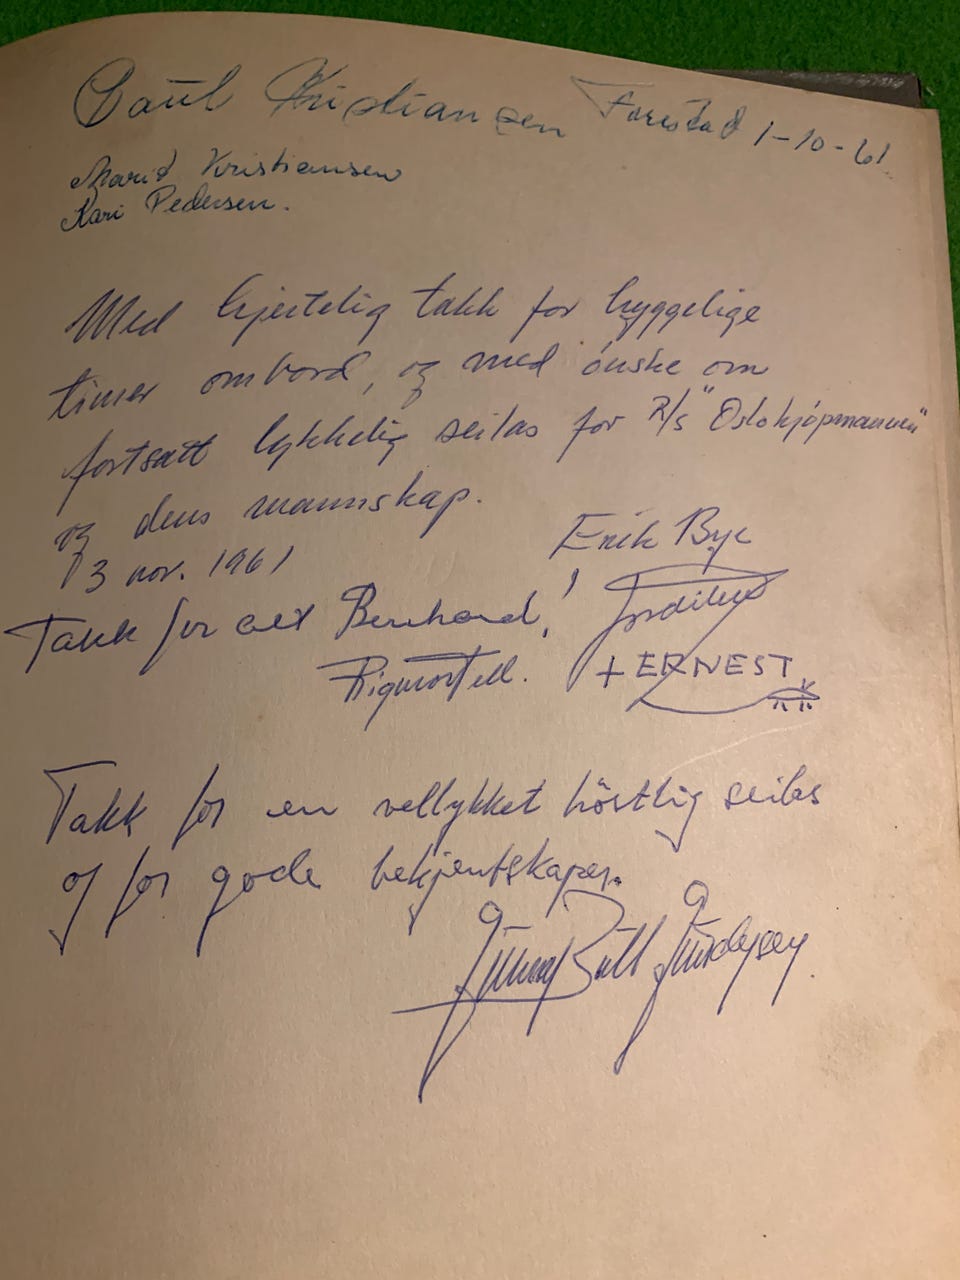 Paul Kristiansen Farestad 1-10-61
Marid Kristiansen
Kari Pedersen.
Med hjertelig takk for hyggelige
timer ombord, og med ønske om
fortsatt lykkelig seilas for R/S "Oslokjøpmannen"
og dens mannskap.
13 nov. 1961 Erik Bye
Takk for alt Bernhard!
+ ERNEST
Takk for en vellykket höstlig seilas
og for gode bekjentskaper.